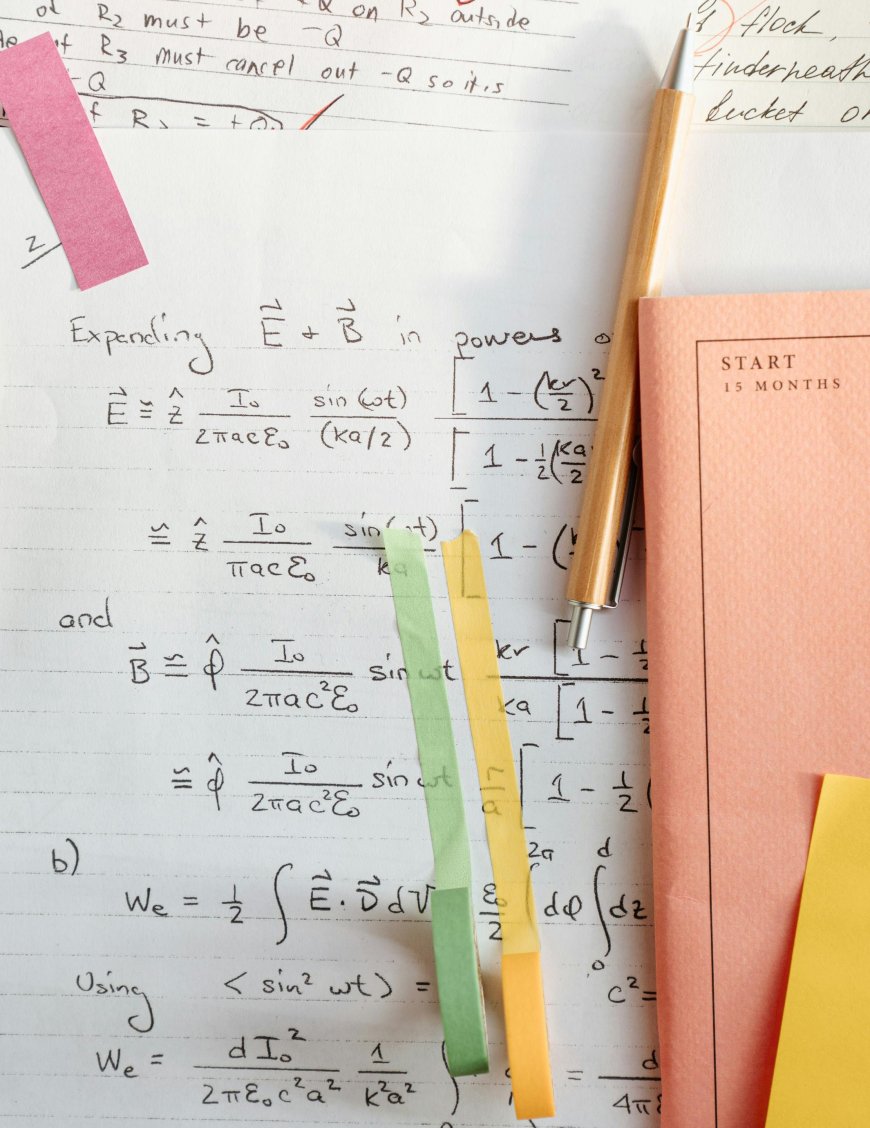 of R₂ must be -Q
Q on R₂ outside
of R₃ must cancel out -Q so it.s
-Q
f R₂ = +Q
flock,
underneath
bucket on
2
Expanding E⃗ + B⃗ in powers
E⃗ ≅ ẑ I₀/(2πacε₀) sin(ωt)/(ka/2) [1 - (kr/2)²] / [1 - ½(ka/2
≅ ẑ I₀/(πacε₀) sin(ωt)/ka [1 - (
and
B⃗ ≅ φ̂ I₀/(2πac²ε₀) sin ωt kr/ka [1 - ½ / [1 - ½
≅ φ̂ I₀/(2πac²ε₀) sin ωt r/a [1 - ½(
b)
We = ½ ∫ E⃗ · D⃗ dV ε₀/2 ∫ 2π dφ ∫₀ᵈ dz
Using < sin² ωt > = c² =
We = dI₀²/(2πε₀c²a²) 1/(k²a²) ∫ = d/4πε
START
15 MONTHS